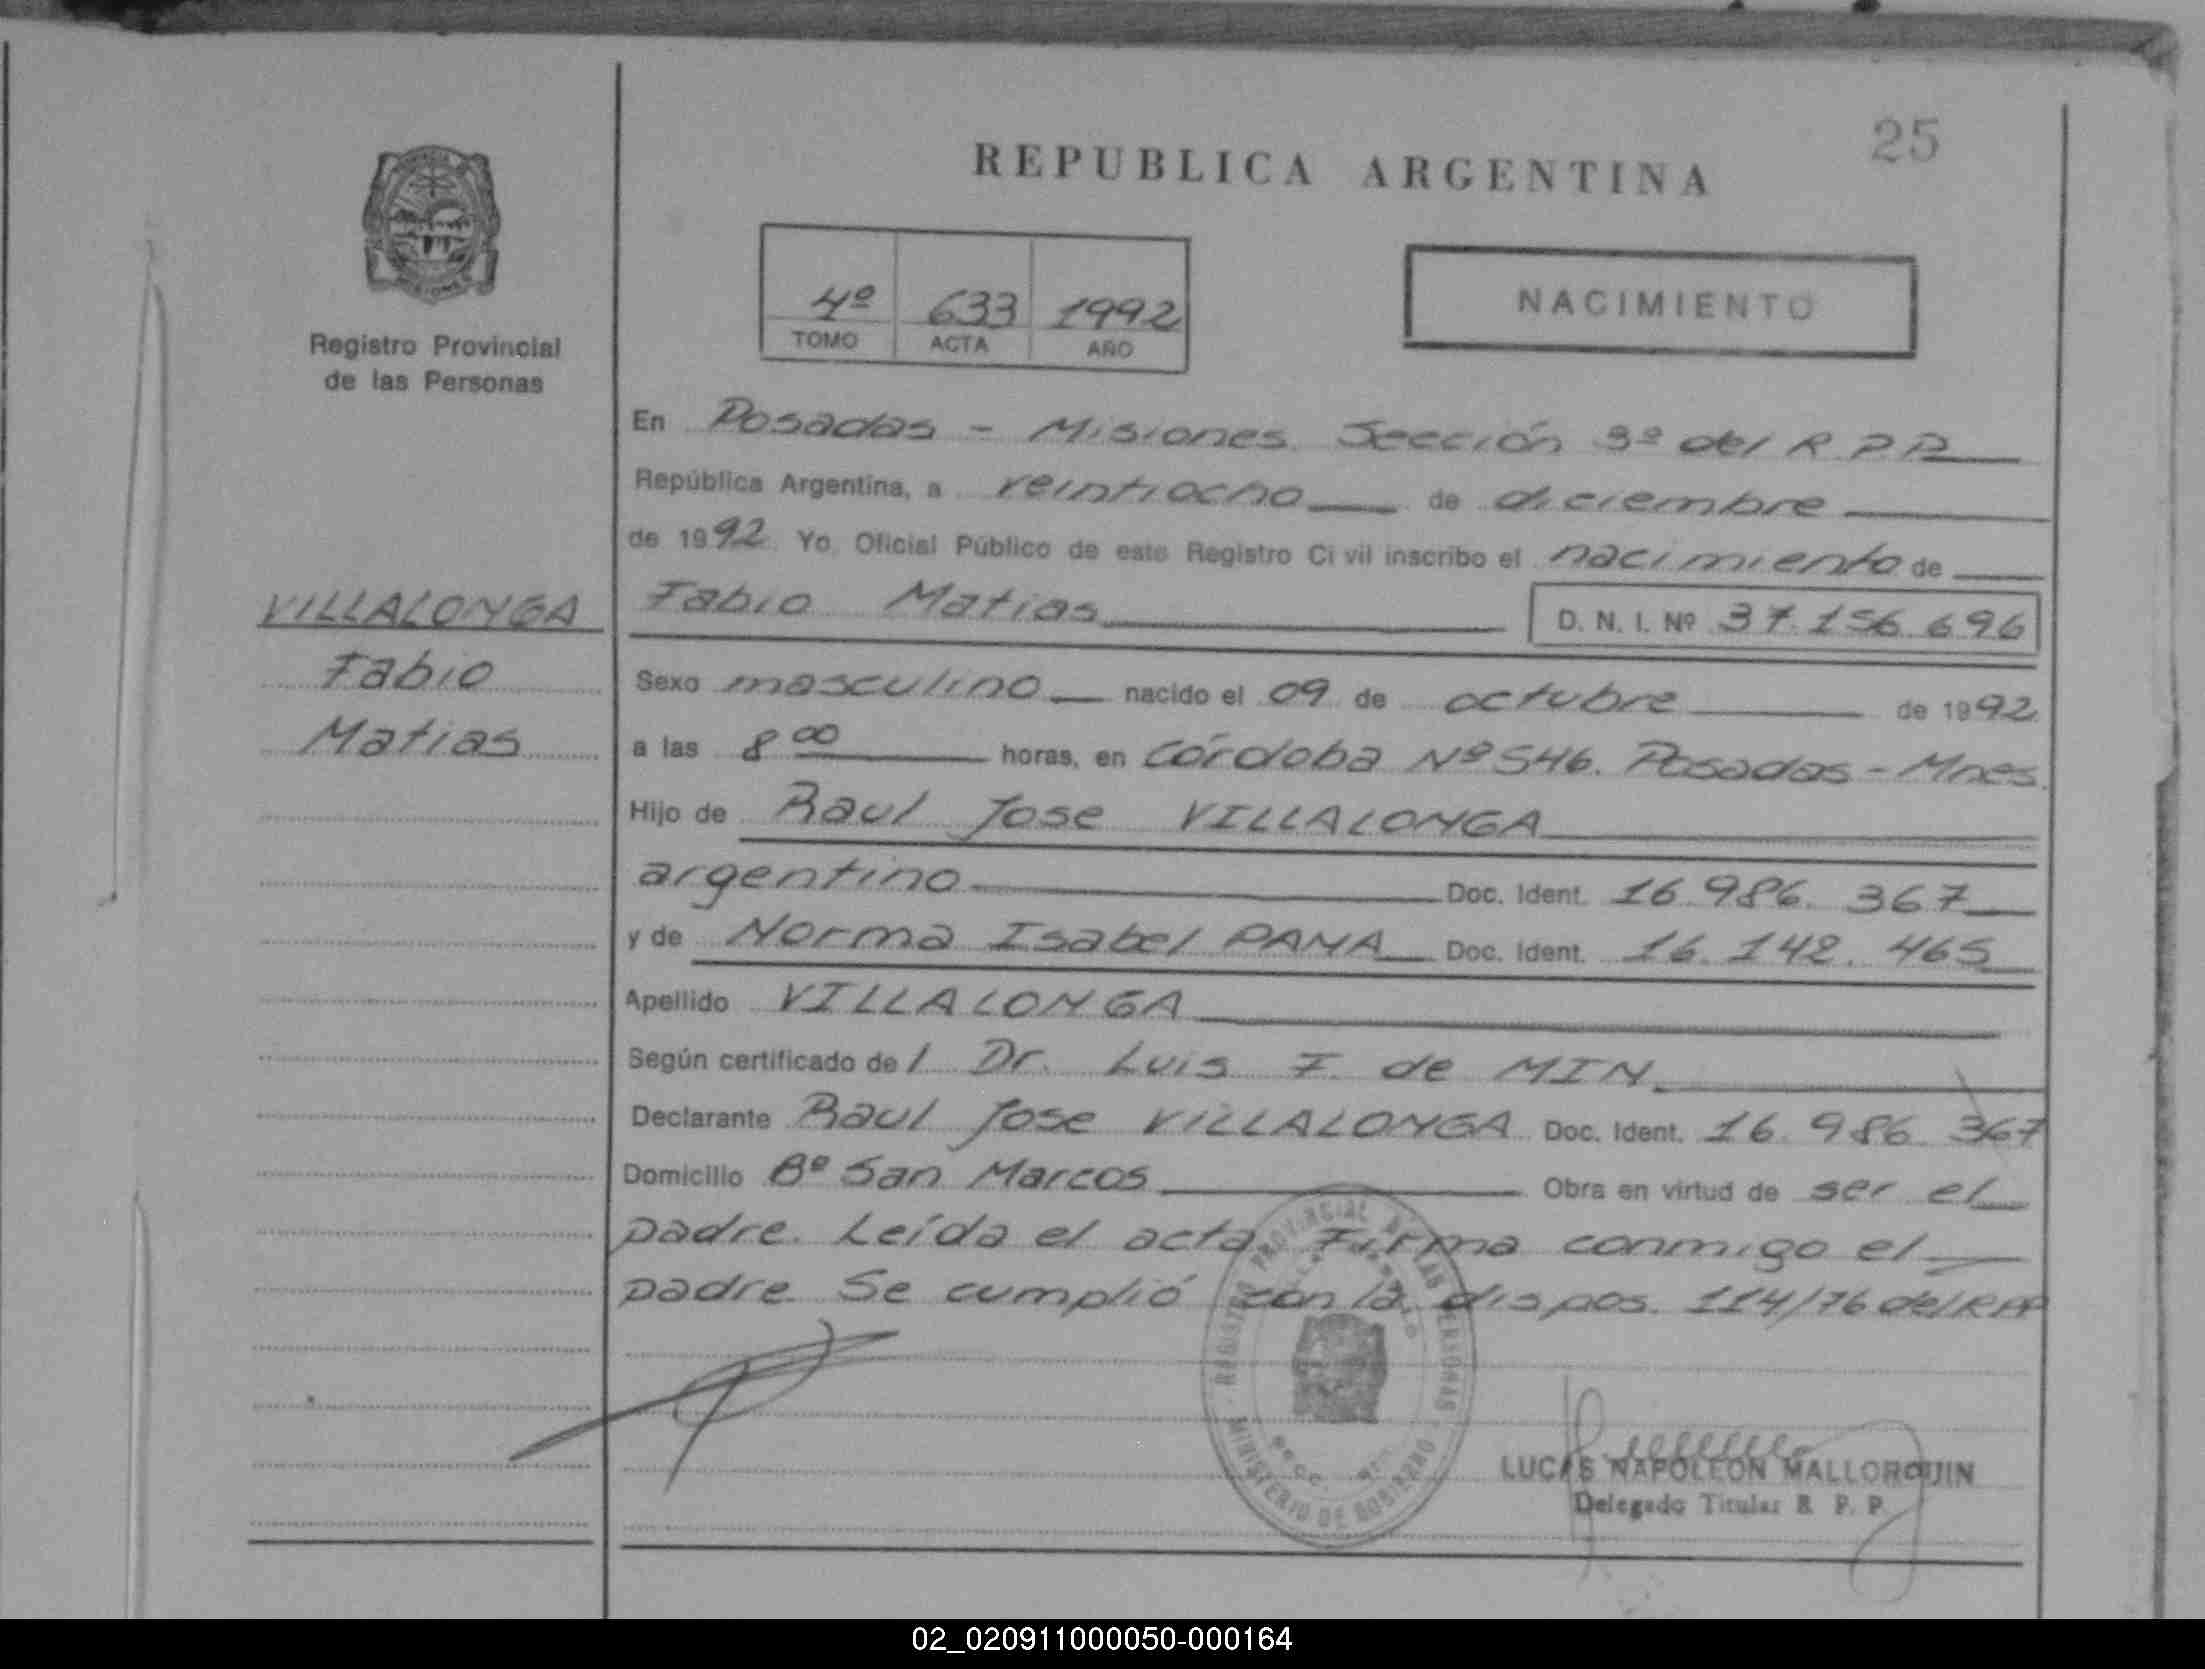 25
REPUBLICA ARGENTINA
4º 633 1992
TOMO ACTA AÑO
NACIMIENTO
Registro Provincial
de las Personas
En Posadas - Misiones. Sección 3º del R.P.P.
República Argentina, a veintiocho de diciembre
de 1992. Yo, Oficial Público de este Registro Civil inscribo el nacimiento de
VILLALONGA
Fabio
Matias
Fabio Matias D. N. I. Nº 37.156.696
Sexo masculino nacido el 09 de octubre de 1992
a las 8 00 horas, en Córdoba Nº 546. Posadas - Mnes.
Hijo de Raul Jose VILLALONGA
argentino Doc. Ident. 16.986.367
y de Norma Isabel Doc. Ident. 16.142.465
Apellido VILLALONGA
Según certificado del Dr. Luis F. de MIN
Declarante Raul Jose VILLALONGA Doc. Ident. 16.986.367
Domicilio Bº San Marcos Obra en virtud de ser el
padre. Leída el acta, Firma conmigo el
padre. Se cumplió con la dispos. 114/76 del R.P.P.
REGISTRO PROVINCIAL DE LAS PERSONAS
MINISTERIO DE GOBIERNO
LUCAS NAPOLEON MALLORQUIN
Delegado Titular R. P. P.
02_020911000050-000164